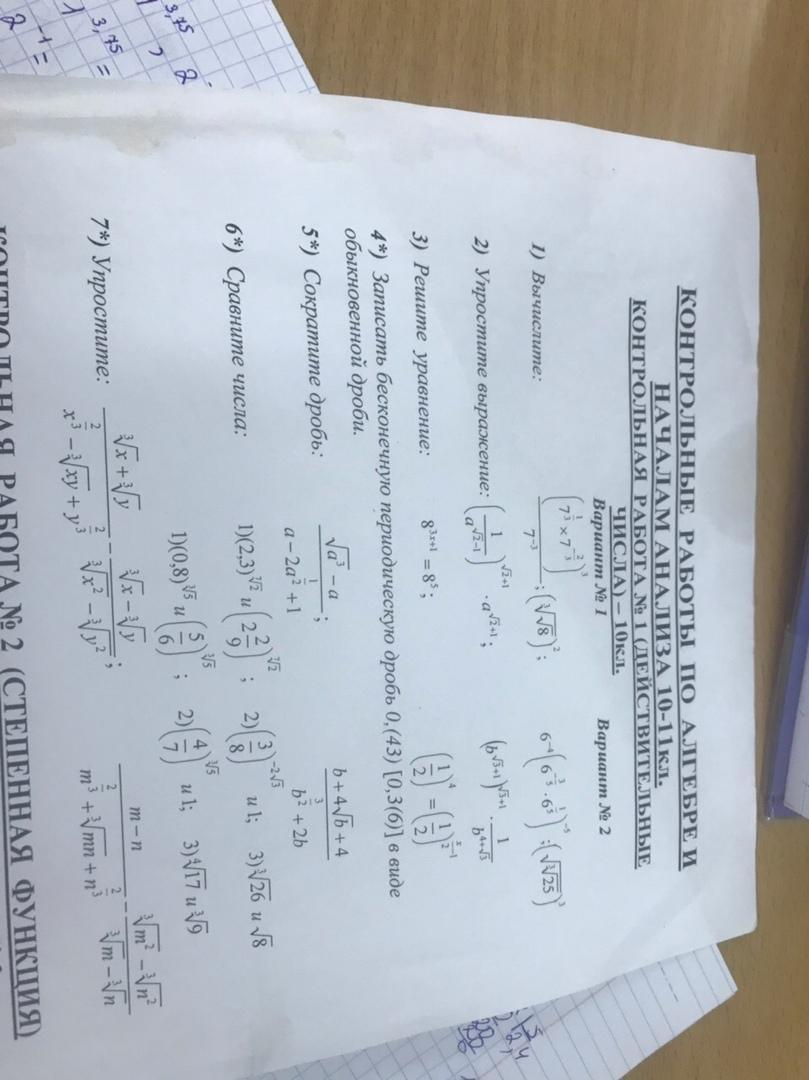 КОНТРОЛЬНЫЕ РАБОТЫ ПО АЛГЕБРЕ И
НАЧАЛАМ АНАЛИЗА 10-11кл.
КОНТРОЛЬНАЯ РАБОТА № 1 (ДЕЙСТВИТЕЛЬНЫЕ
ЧИСЛА) – 10кл.
Вариант № 1 Вариант № 2
1) Вычислите: (7^(1/3) × 7^(-2/3))^3 / 7^(-3) : (∛8)^2 ; 6^(-4) (6^(-3/5) · 6^(1/5))^(-5) ; (√∛25)^3
2) Упростите выражение: (1/a^(√2-1))^(√2+1) · a^(√2+1) ; (b^(√3+1))^(√3+1) · 1/b^(4+√3)
3) Решите уравнение: 8^(3x+1) = 8^5 ; (1/2)^4 = (1/2)^(x/2-1)
4*) Записать бесконечную периодическую дробь 0,(43) [0,3(6)] в виде
обыкновенной дроби.
5*) Сократите дробь: (√a^3 - a)/(a - 2a^(1/2) + 1) ; (b + 4√b + 4)/(b^(3/2) + 2b)
6*) Сравните числа: 1)(2,3)^(∛2) и (2 2/9)^(∛2) ; 2)(3/8)^(-2√3) и 1; 3)∛26 и √8
1)(0,8)^(∛5) и (5/6)^(∛5) ; 2)(4/7)^(∛5) и 1; 3)∜17 и ∛9
7*) Упростите: (∛x + ∛y)/(x^(2/3) - ∛xy + y^(2/3)) - (∛x - ∛y)/(∛x^2 - ∛y^2) ; (m - n)/(m^(2/3) + ∛mn + n^(2/3)) - (∛m^2 - ∛n^2)/(∛m - ∛n)
КОНТРОЛЬНАЯ РАБОТА № 2 (СТЕПЕННАЯ ФУНКЦИЯ)